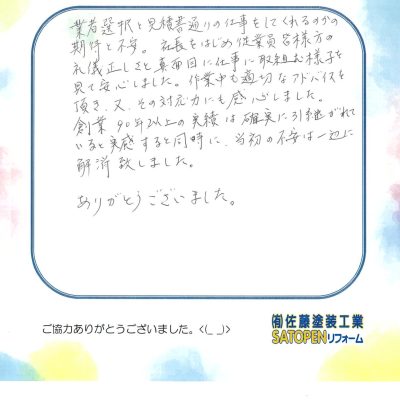 業者選択と見積書通りの仕事をしてくれるのかの
期待と不安。社長をはじめ従業員皆様方の
礼儀正しさと真面目に仕事に取組む様子を
見て安心しました。作業中も適切なアドバイスを
頂き、又、その対応力にも感心しました。
創業90年以上の実績は確実に引継がれて
いると実感すると同時に、当初の不安は一辺に
解消致しました。
ありがとうございました。
ご協力ありがとうございました。<(_ _)>
(有)佐藤塗装工業
SATOPENリフォーム